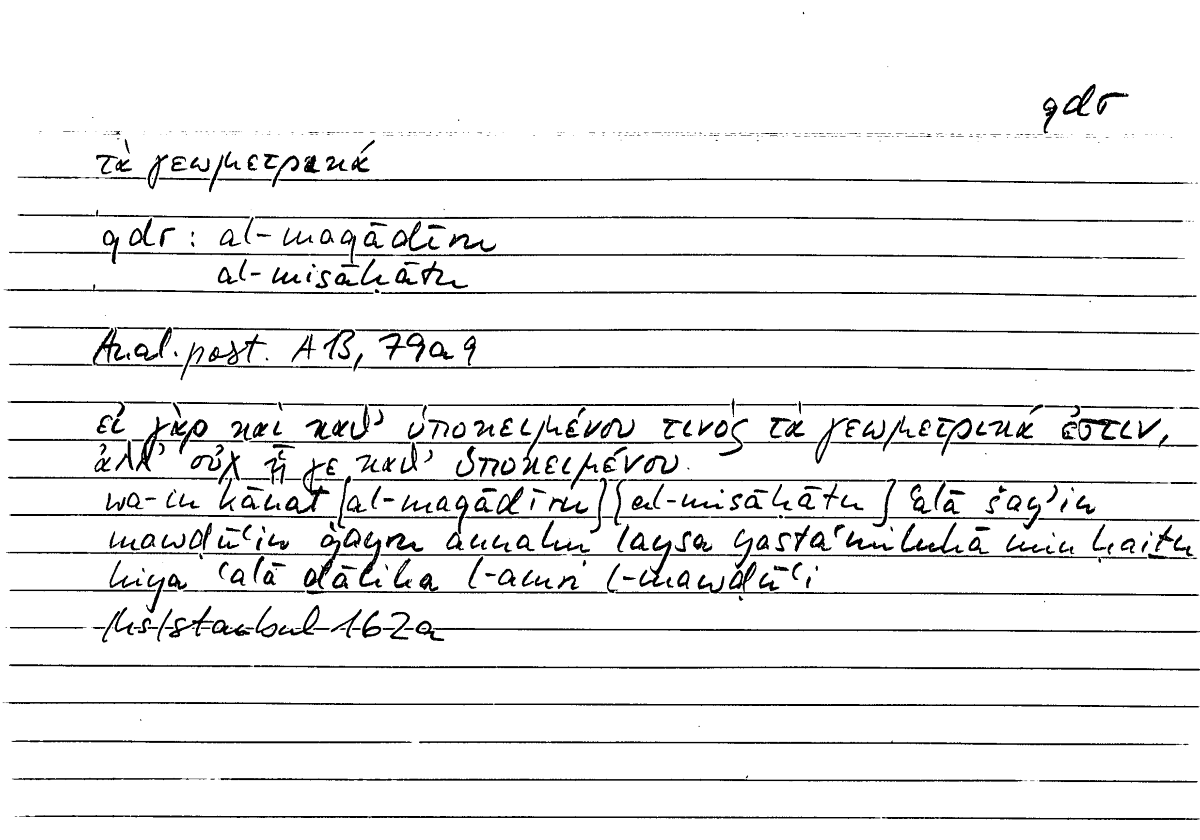 qdr
τὰ γεωμετρικά
qdr : al-maqādīru
al-misāḥātu
Anal. post. A 13, 79a9
εἰ γὰρ καὶ καθ' ὑποκειμένου τινός τὰ γεωμετρικά ἐστιν,
ἀλλ' οὐχ ᾗ γε καθ' ὑποκειμένου.
wa-in kānat [al-maqādīru] {al-misāḥātu} ʿalā šayʾin
mawḍūʿin ġayru annahu laysa yastaʿmiluhā min ḥaiṯu
hiya ʿalā ḏālika l-amri l-mawḍūʿi
Hs Istanbul 162a